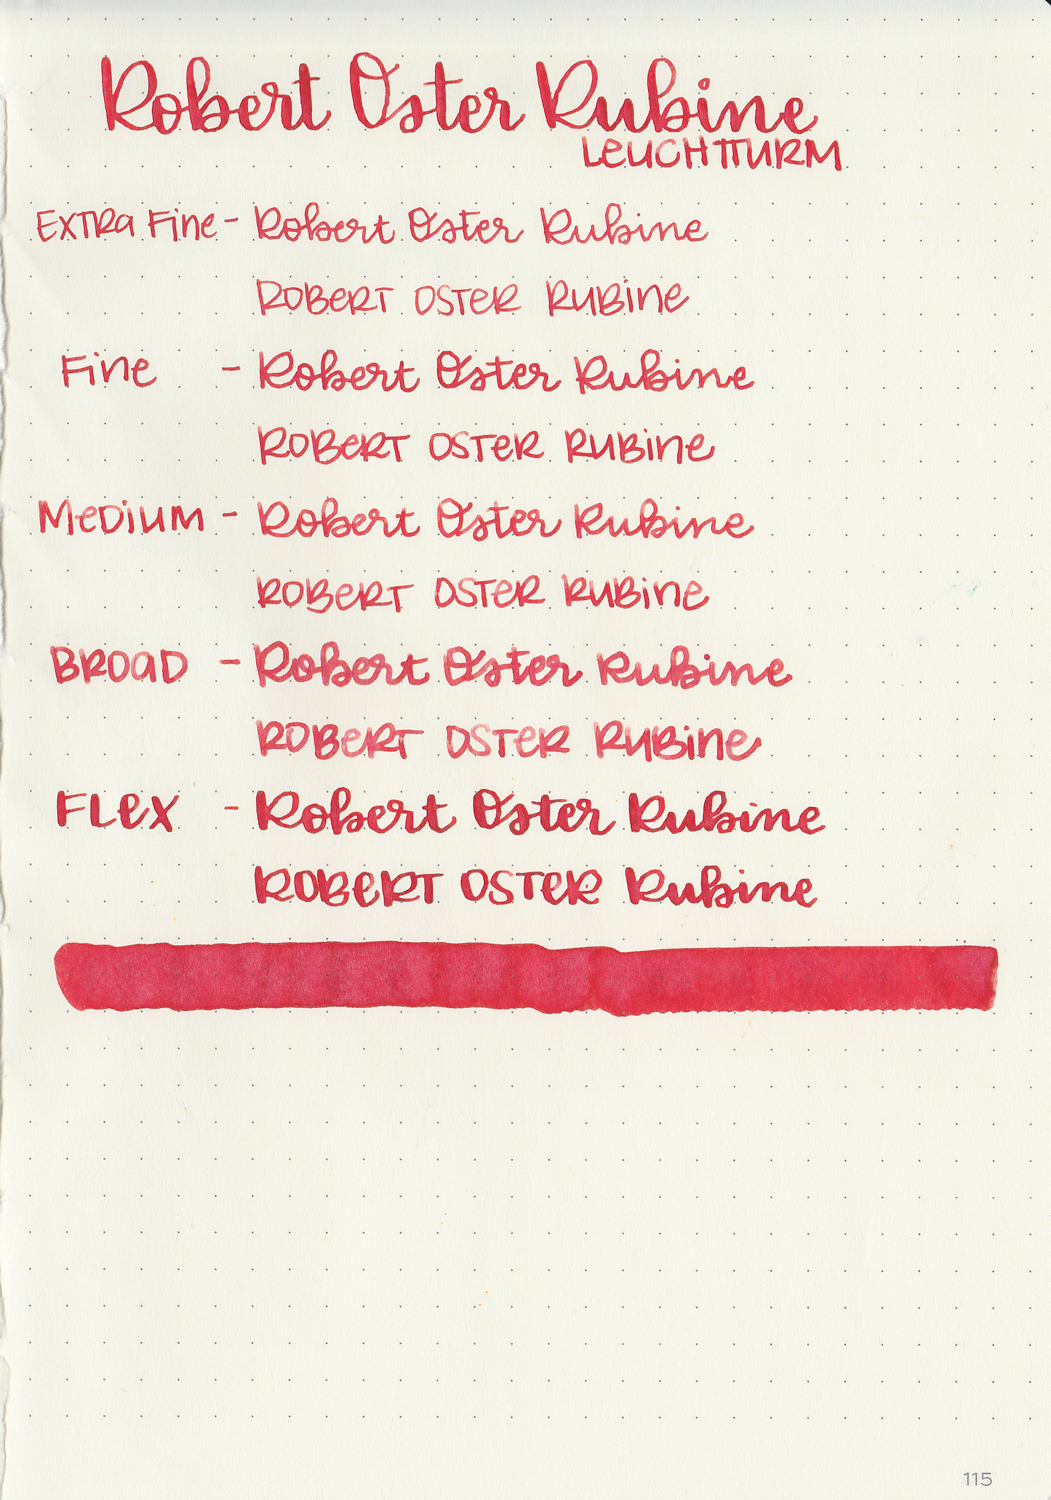 Robert Oster Rubine
LEUCHTTURM
EXTRA Fine - Robert Oster Rubine
ROBERT OSTER RUBine
Fine - Robert Oster Rubine
ROBERT OSTER RUBine
MeDiUM - Robert Oster Rubine
ROBERT OSTER RUBine
BROAD - Robert Oster Rubine
ROBERT OSTER RUBine
FLeX - Robert Oster Rubine
ROBERT OSTER Rubine
115